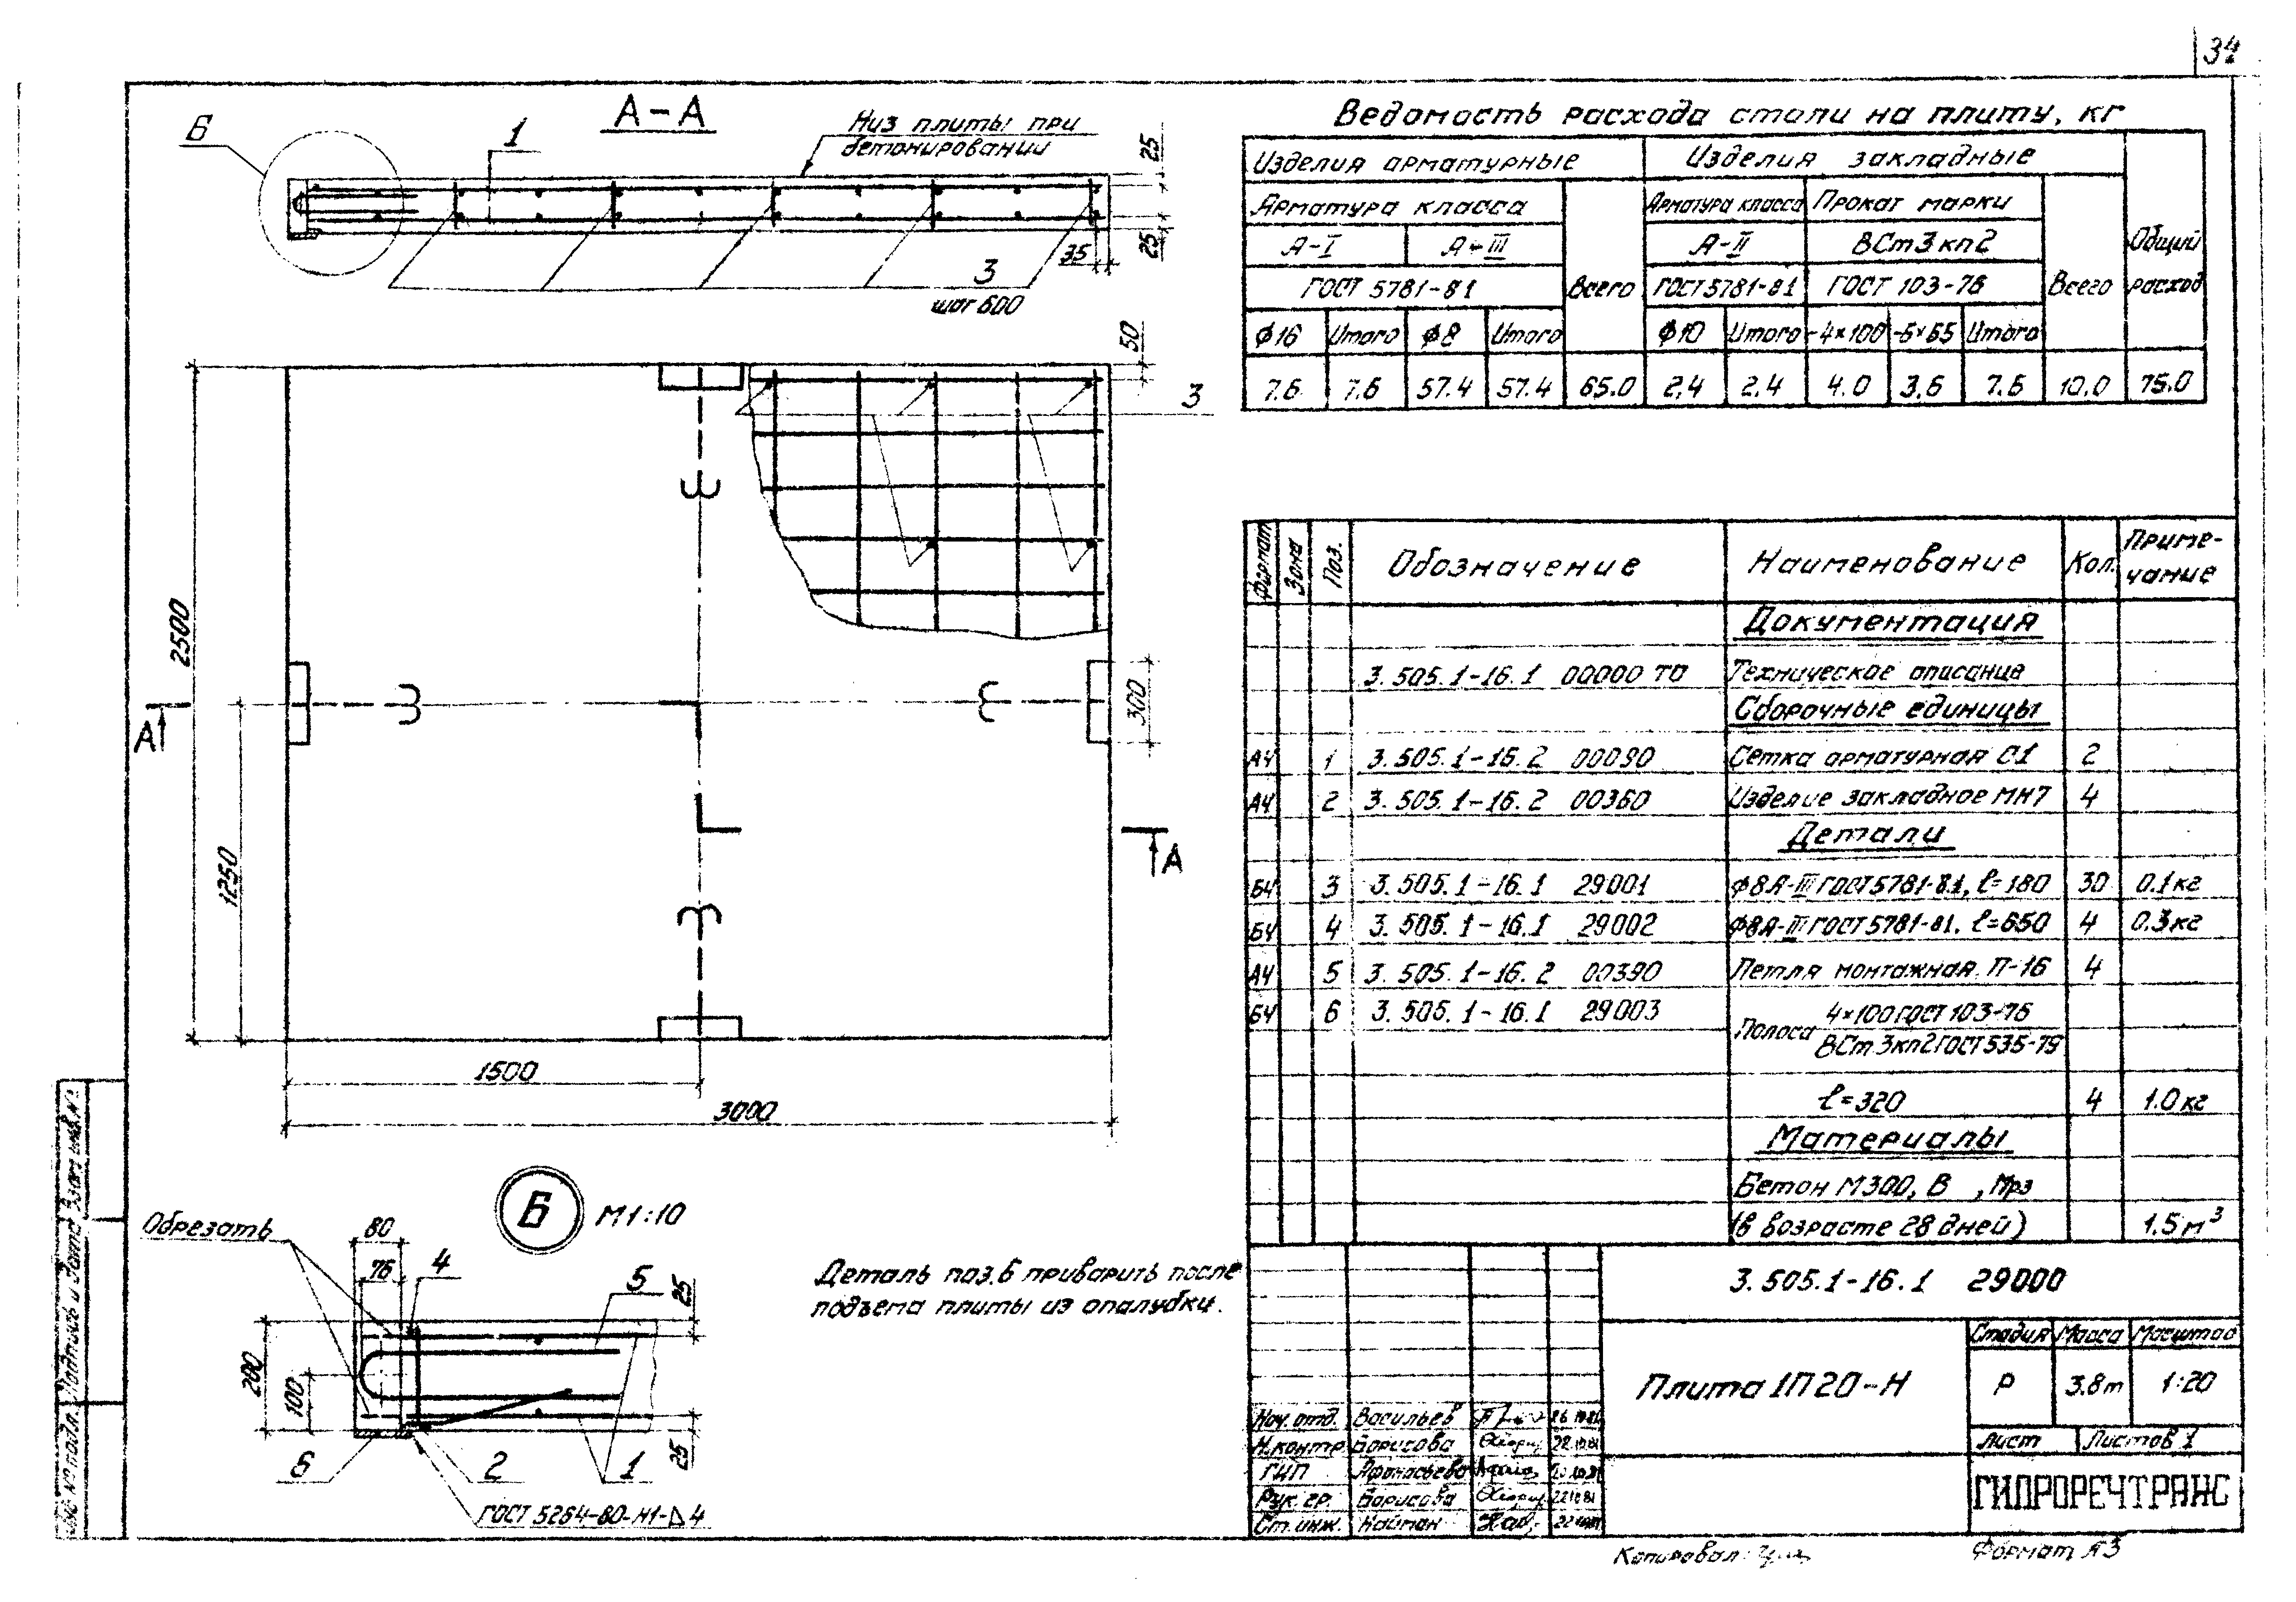 34
А-А
Б
1
Низ плиты при
бетонировании
25
25
35
3
шаг 600
50
3
2500
1250
300
А
А
1500
3000
Б М1:10
Обрезать
80
76
4
5
25
200
100
25
6
2
1
ГОСТ 5264-80-Н1-△4
Деталь поз.6 приварить после
подъема плиты из опалубки.
Ведомость расхода стали на плиту, кг
Изделия арматурные Изделия закладные Общий расход
Арматура класса Всего Арматура класса Прокат марки Всего
А-I А-III А-II ВСт3кп2
ГОСТ 5781-81 ГОСТ 5781-81 ГОСТ 103-76
ф16 Итого ф8 Итого ф10 Итого -4×100 Итого
7.6 7.6 57.4 57.4 65.0 2,4 2.4 4.0 3.6 7.6 10.0 75.0
Формат Зона Поз. Обозначение Наименование Кол. Приме-
чание
Документация
3.505.1-16.1 00000 ТО Техническое описание
Сборочные единицы
А4 1 3.505.1-16.2 00090 Сетка арматурная С1 2
А4 2 3.505.1-16.2 00360 Изделие закладное МН7 4
Детали
БЧ 3 3.505.1-16.1 29001 ф8А-III ГОСТ 5781-81, ℓ=180 30 0.1кг
БЧ 4 3.505.1-16.1 29002 ф8А-III ГОСТ 5781-81. ℓ=650 4 0.3кг
А4 5 3.505.1-16.2 00390 Петля монтажная П-16 4
БЧ 6 3.505.1-16.1 29003 Полоса 4×100 ГОСТ 103-76
ВСт3кп2 ГОСТ 535-79
ℓ=320 4 1.0кг
Материалы
Бетон М300, В , Мрз
(в возрасте 28 дней) 1.5м³
3.505.1-16.1 29000
Плита 1П20-Н
Стадия Масса Масштаб
Р 3.8т 1:20
Лист Листов 1
ГИПРОРЕЧТРАНС
Нач. отд. Васильев
Н.контр. Борисова
ГИП Афанасьева
Рук. гр. Борисова
Ст. инж. Найман
Копировал:
Формат А3
Инв. № подл. Подпись и дата Взам. инв. №